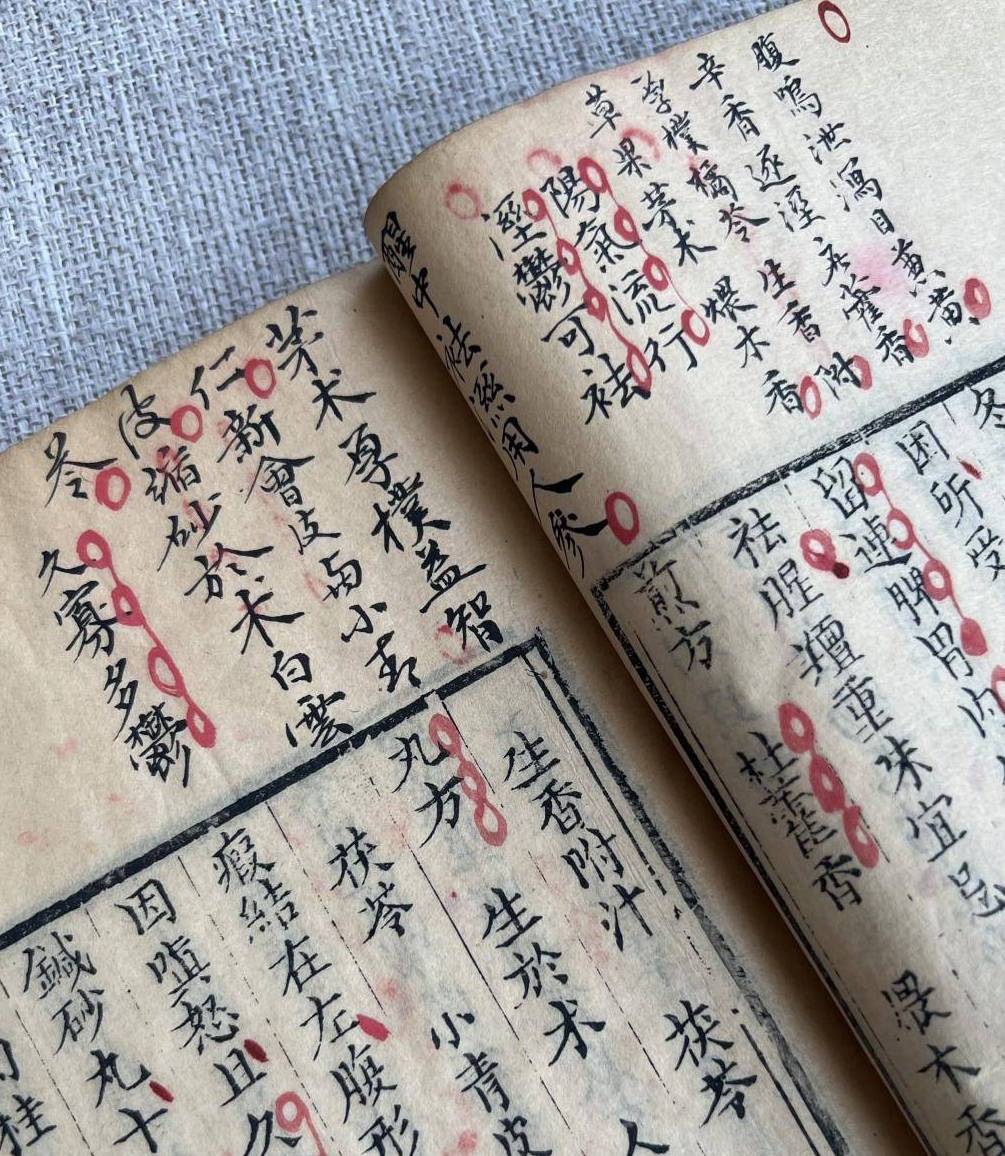 腹鳴洪瀉目黃
辛香逐溼
生香附
厚樸橘苓煨木香
草果茅术
陽氣流行
溼鬱可祛
用人參
冬
困所受
留連脾胃肉
祛腥羶重味宜
煨木香
前方 杜藿香
茅术厚樸益智
仁新會皮
小青
皮縮砂於术白雲
苓久寡多鬱
生香附汁 茯苓
丸方 生於术 人
茯苓 小青皮
瘕結在左腹形
因嗔怒且久
鍼砂丸十
桂